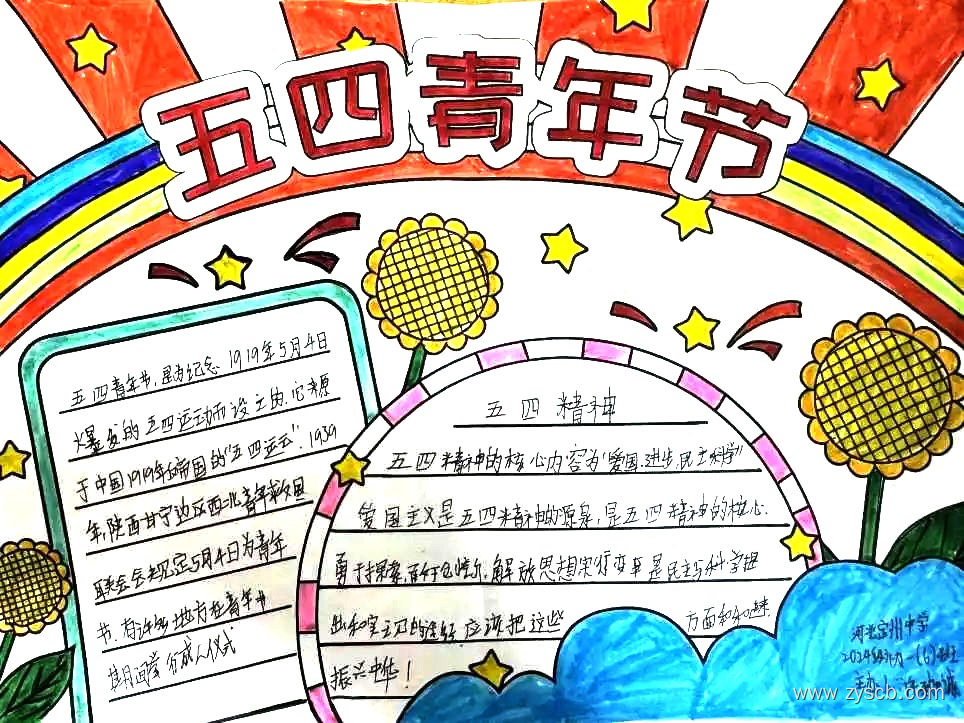 五四青年节
五四青年节,是为纪念1919年5月4日
爆发的五四运动而设立的.它来源
于中国1919年的帝国的"五四运云".1939
年,陕西甘宁边区西北青年救国
联合会规定5月4日为青年
节.有许多地方在青年节
期间举行成人仪式
五四精神
五四精神的核心内容为"爱国.进步.民主.科学"
爱国主义是五四精神的源泉,是五四精神的核心.
勇于探索 解放思想实行变革是民主与科学提
出和实现的途径 应该把这些 方面和
振兴中华!
河北定州中学
(6)班
www.zyscb.com